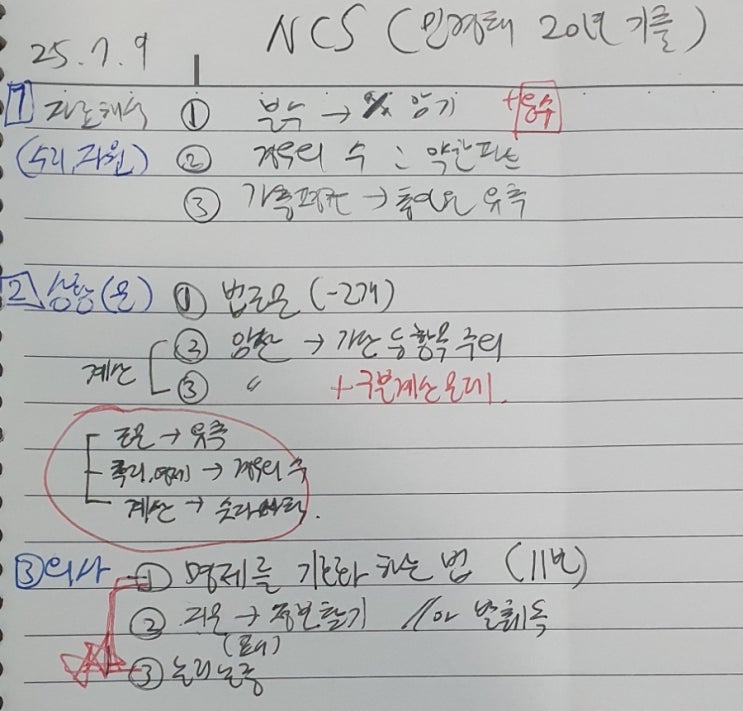 25.7.9 NCS (민경채 20년 기출)
1 자료해석 ① 분수 → 암기 +응수
(수리, 자원) ② 경우의 수 : 약간
③ 가중평균 → 유추
2 상황(문) ① 법조문 (-2개)
② → 가산 등 항목 추리
계산 ③ 〃 +구분계산문제.
조문 → 유추
논리, 명제 → 경우의 수
계산 → 숫자
③ 의사 ① 명제를 기호화 하는 법 (11번)
② 지문 → 정보찾기 // 발췌독
(표시)
③ 논리논증